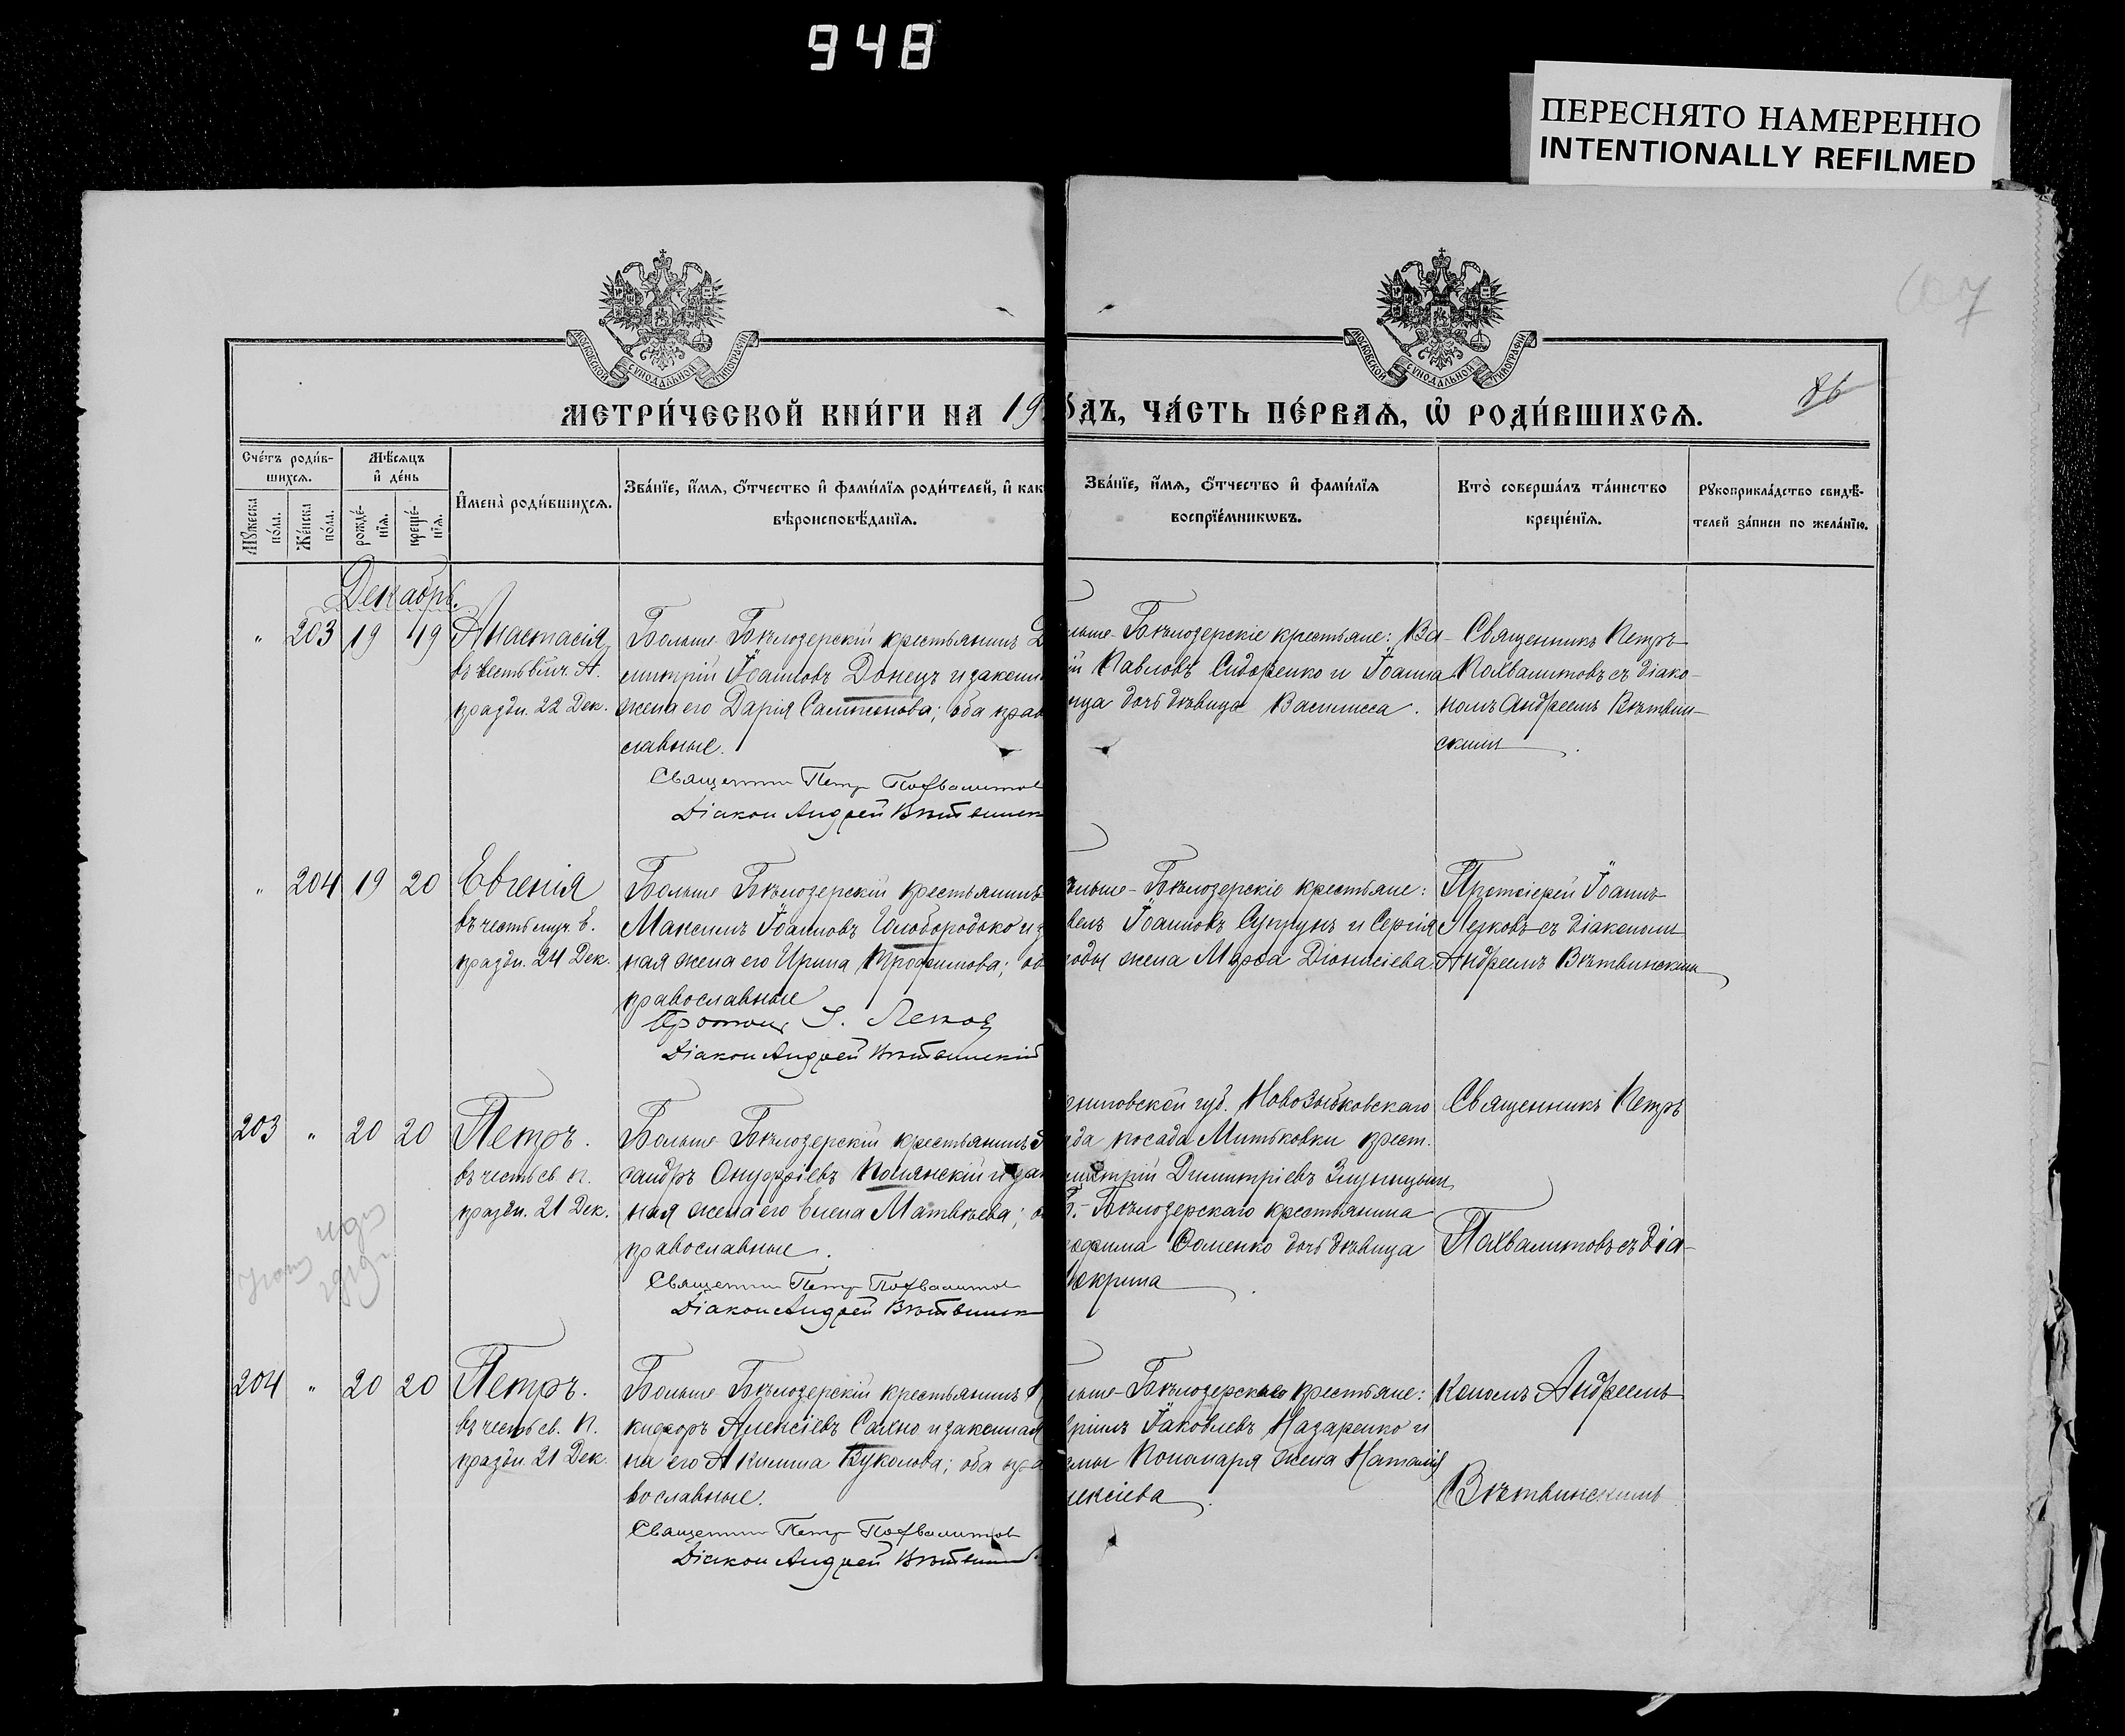 948
ПЕРЕСНЯТО НАМЕРЕННО
INTENTIONALLY REFILMED
МОСКОВСКОЙ СѴНОДАЛЬНОЙ ТИПОГРАФІИ
МОСКОВСКОЙ СѴНОДАЛЬНОЙ ТИПОГРАФІИ
86
МЕТРИ́ЧЕСКОЙ КНИ́ГИ НА 19
ОДЪ, ЧА́СТЬ ПЕ́РВАѦ, Ѿ РОДИ́ВШИХСѦ.
Сче́тъ роди́в-
шихсѧ.
Мꙋжеска по́ла.
Же́нска по́ла.
Мѣ́сѧцъ
и҆ де́нь
рожде́-
нїѧ.
креще́-
нїѧ.
И҆мена̀ роди́вшихсѧ.
Зва́нїе, и҆́мѧ, ѻ҆́тчество и҆ фами́лїѧ роди́телей, и҆ как
вѣроисповѣ́данїѧ.
Зва́нїе, и҆́мѧ, ѻ҆́тчество и҆ фами́лїѧ
воспрїе́мникѡвъ.
Кто̀ соверша́лъ та́инство
креще́нїѧ.
Рꙋкоприкла́дство свидѣ́-
телей за́писи по жела́нїю.
Декабрь.
" 203 19 19 Анастасія
въ честь влмч. А.
праздн. 22 Дек.
Больше Бѣлозерскій крестьянинъ Д
митрій Іоанновъ Донецъ и законн
жена его Дарія Самсонова; оба прав
славные.
Священник Петр Похвалитов
Діакон Андрей Вѣтвинск
льше-Бѣлозерскіе крестьяне: Ва-
ій Павловъ Сидоренко и Іоанна
нца дочь дѣвица Василисса.
Священникъ Петръ
Похвалитовъ съ діако-
номъ Андреемъ Вѣтвин-
скимъ.
" 204 19 20 Евгенія
въ честь муч. Е.
праздн. 24 Дек.
Больше Бѣлозерскій крестьянинъ
Максимъ Іоанновъ Голобородько и з
ная жена его Ирина Трофимова; об
православные
Протоиер І. Леков
Діакон Андрей Вѣтвинскій
ольше-Бѣлозерскіе крестьяне:
велъ Іоанновъ Супрунъ и Сергія
годы жена Марѳа Діонисіева.
Протоіерей Іоаннъ
Лерковъ съ діакономъ
Андреемъ Вѣтвинскимъ
203 " 20 20 Петръ.
въ честь св. П.
праздн. 21 Дек.
Больше Бѣлозерскій крестьянинъ А
сандръ Онуфріевъ Полянскій и зак
ная жена его Елена Матвѣева; о
православные.
Священник Петр Похвалитов
Діакон Андрей Вѣтвинск
рниговской губ. Новозыбковскаго
зда посада Митьковки крест.
митрій Димитріевъ
Б.-Бѣлозерскаго крестьянина
рофима Фоменко дочь дѣвица
Макрина.
Священникъ Петръ
Похвалитовъ съ діа-
204 " 20 20 Петръ.
въ честь св. П.
праздн. 21 Дек.
Больше Бѣлозерскій крестьянинъ Н
кифоръ Алексіевъ Сахно и законная
на его Акилина Вуколова; оба пра
вославные.
Священник Петр Похвалитов
Діакон Андрей Вѣтвинс
льше-Бѣлозерскіе крестьяне:
вріилъ Іаковлевъ Назаренко и
омы Пономаря жена Наталія
лексіева.
кономъ Андреемъ
Вѣтвинскимъ